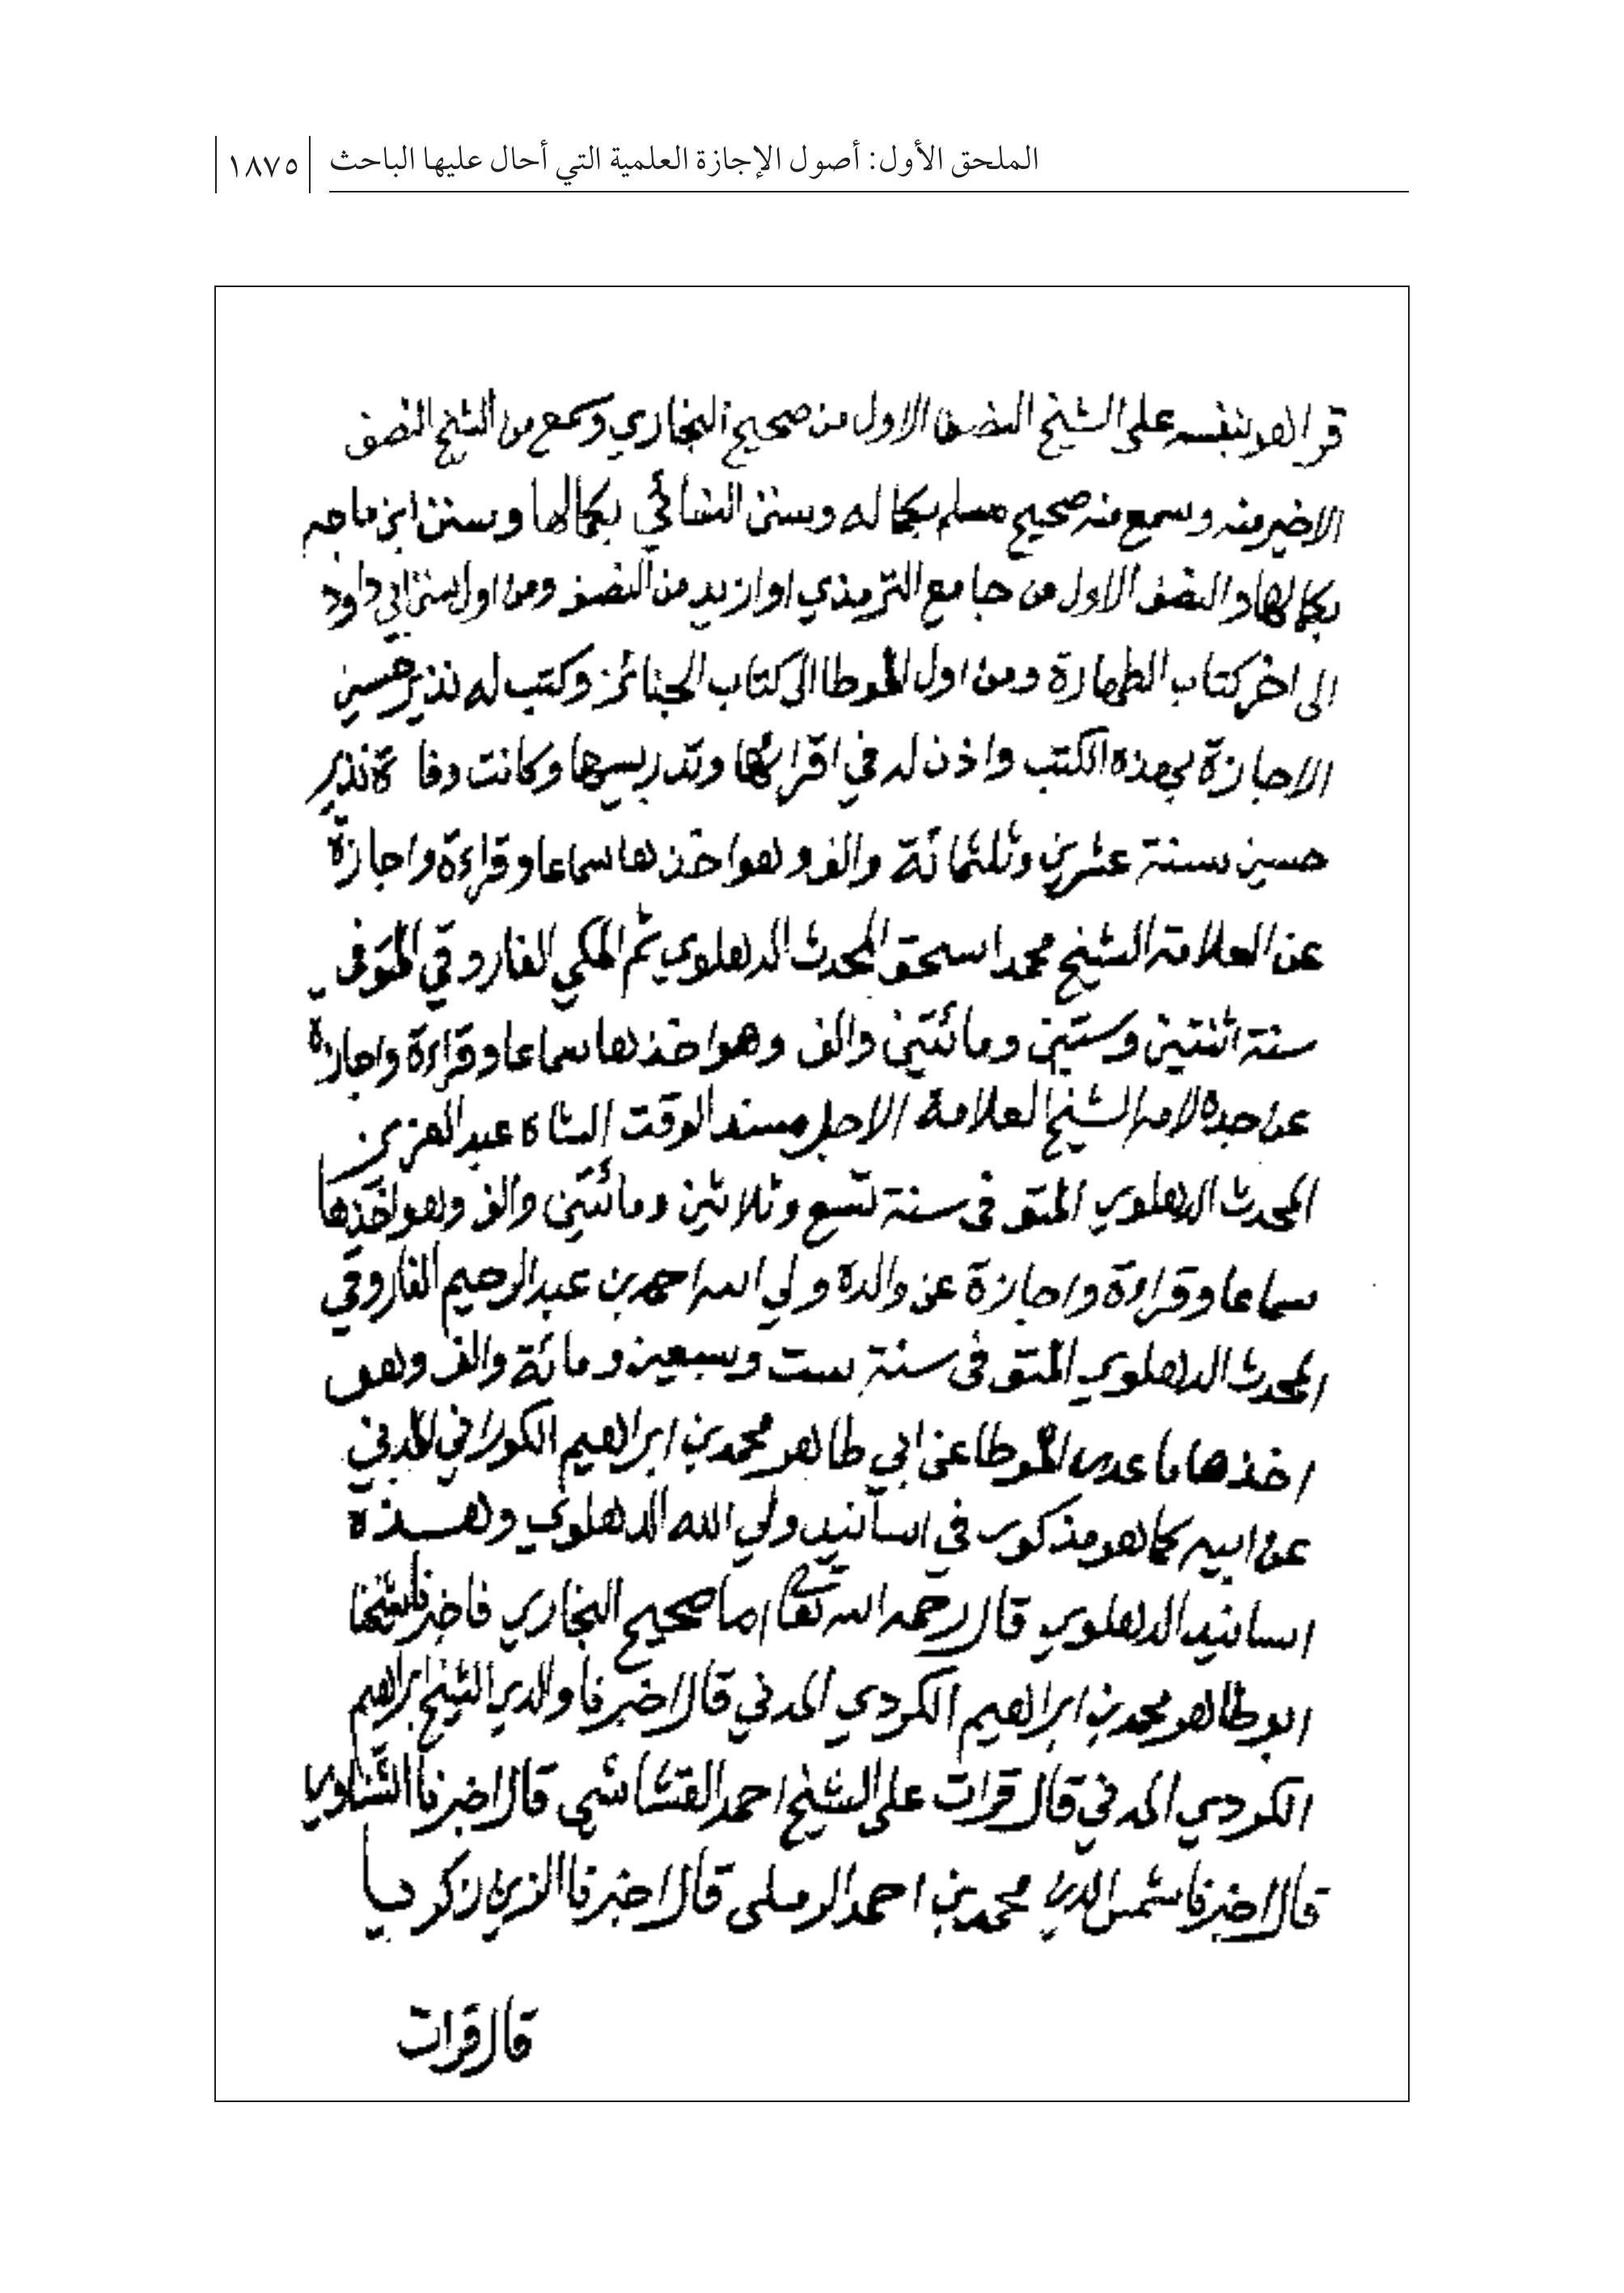 الملحق الأول: أصول الإجازة العلمية التي أحال عليها الباحث
١٨٧٥
قرا هو بنفسه على الشيخ النصف الاول من صحيح البخاري وسمع من الشيخ النصف
الاخير منه وسمع منه صحيح مسلم بكماله وسنن النسائي بكمالها وسنن ابن ماجه
بكمالها والنصف الاول من جامع الترمذي او ازيد من النصف ومن اول سنن ابي داود
الى اخر كتاب الطهارة ومن اول الموطا الى كتاب الجنائز وكتب له نذير حسين
الاجازة بهذه الكتب واذن له في اقرائها وتدريسها وكانت وفاة نذير
حسين سنة عشرين وثلثمائة والف وهو اخذها سماعا وقراءة واجازة
عن العلامة الشيخ محمد اسحق المحدث الدهلوي ثم المكي الفاروقي المتوفى
سنة اثنتين وستين ومائتين والف وهو اخذها سماعا وقراءة واجازة
عن جده لامه الشيخ العلامة الاجل مسند الوقت الشاه عبد العزيز
المحدث الدهلوي المتوفى سنة تسع وثلاثين ومائتين والف وهو اخذها
سماعا وقراءة واجازة عن والده ولي الله احمد بن عبد الرحيم الفاروقي
المحدث الدهلوي المتوفى سنة ست وسبعين ومائة والف وهو
اخذها ما عدى الموطا عن ابي طاهر محمد بن ابراهيم الكوراني المدني
عن ابيه كما هو مذكور في اسانيد ولي الله الدهلوي وهذه
اسانيد الدهلوي قال رحمه الله تعالى اما صحيح البخاري فاخبرنا شيخنا
ابو طاهر محمد بن ابراهيم الكردي المدني قال اخبرنا والدي الشيخ ابراهيم
الكردي المدني قال قرات على الشيخ احمد القشاشي قال اخبرنا الشناوي
قال اخبرنا شمس الدين محمد بن احمد الرملي قال اخبرنا الزين زكريا
قال قرات